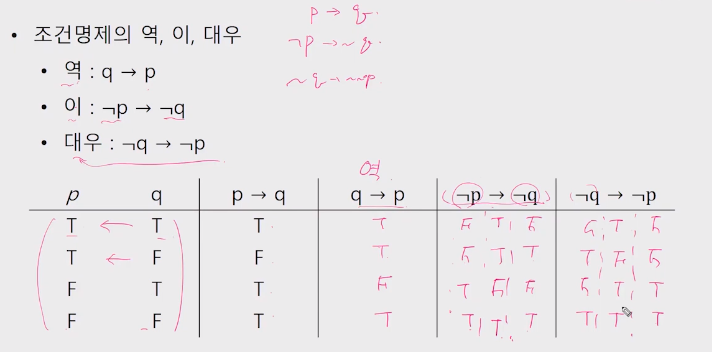 p → q.
• 조건명제의 역, 이, 대우
¬p → ~q.
• 역 : q → p
~q → ~p
• 이 : ¬p → ¬q
• 대우 : ¬q → ¬p
역
p q p → q q → p ¬p → ¬q ¬q → ¬p
T ← T T T F T F F T F
T ← F F T F T T T F F
F T T F T F F F T T
F F T T T T T T T T